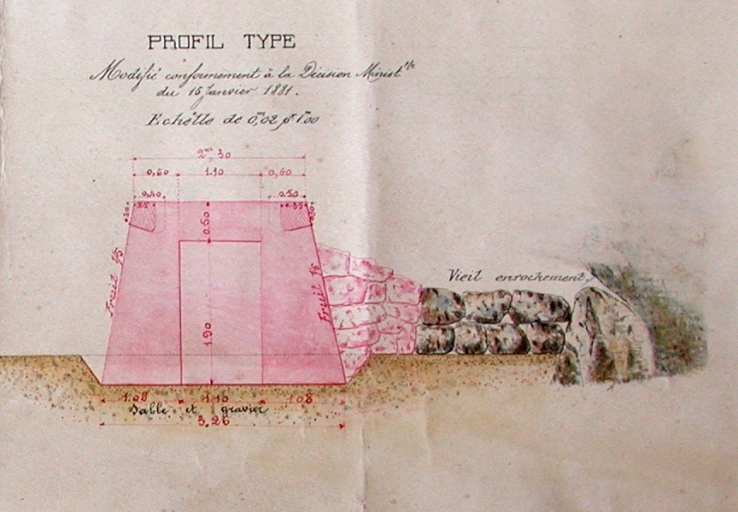 PROFIL TYPE
Modifié conformément à la Décision Minist.lle
du 15 Janvier 1881.
Echelle de 0m,02 pr 1.m00
2m,30
0,60 1.10 0,60
0,40 0.50
0.50
Fruit 1/5
Fruit 1/5
Vieil enrochement
1.90
1.08 1.10 1.08
Sable et gravier
3,26